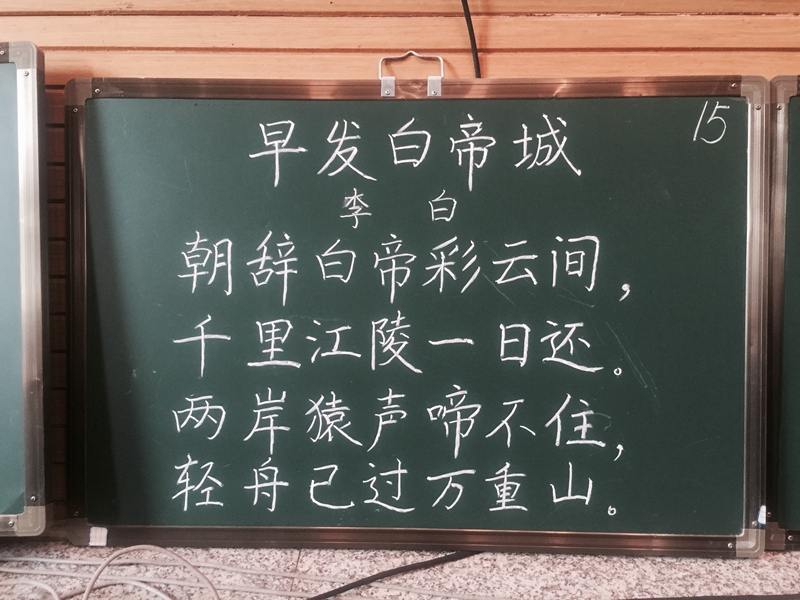 15
早发白帝城
李 白
朝辞白帝彩云间,
千里江陵一日还。
两岸猿声啼不住,
轻舟已过万重山。